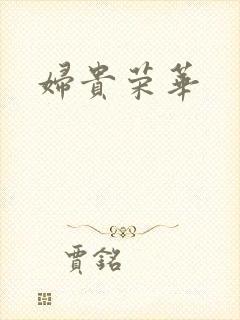 婦貴荣華
賈銘